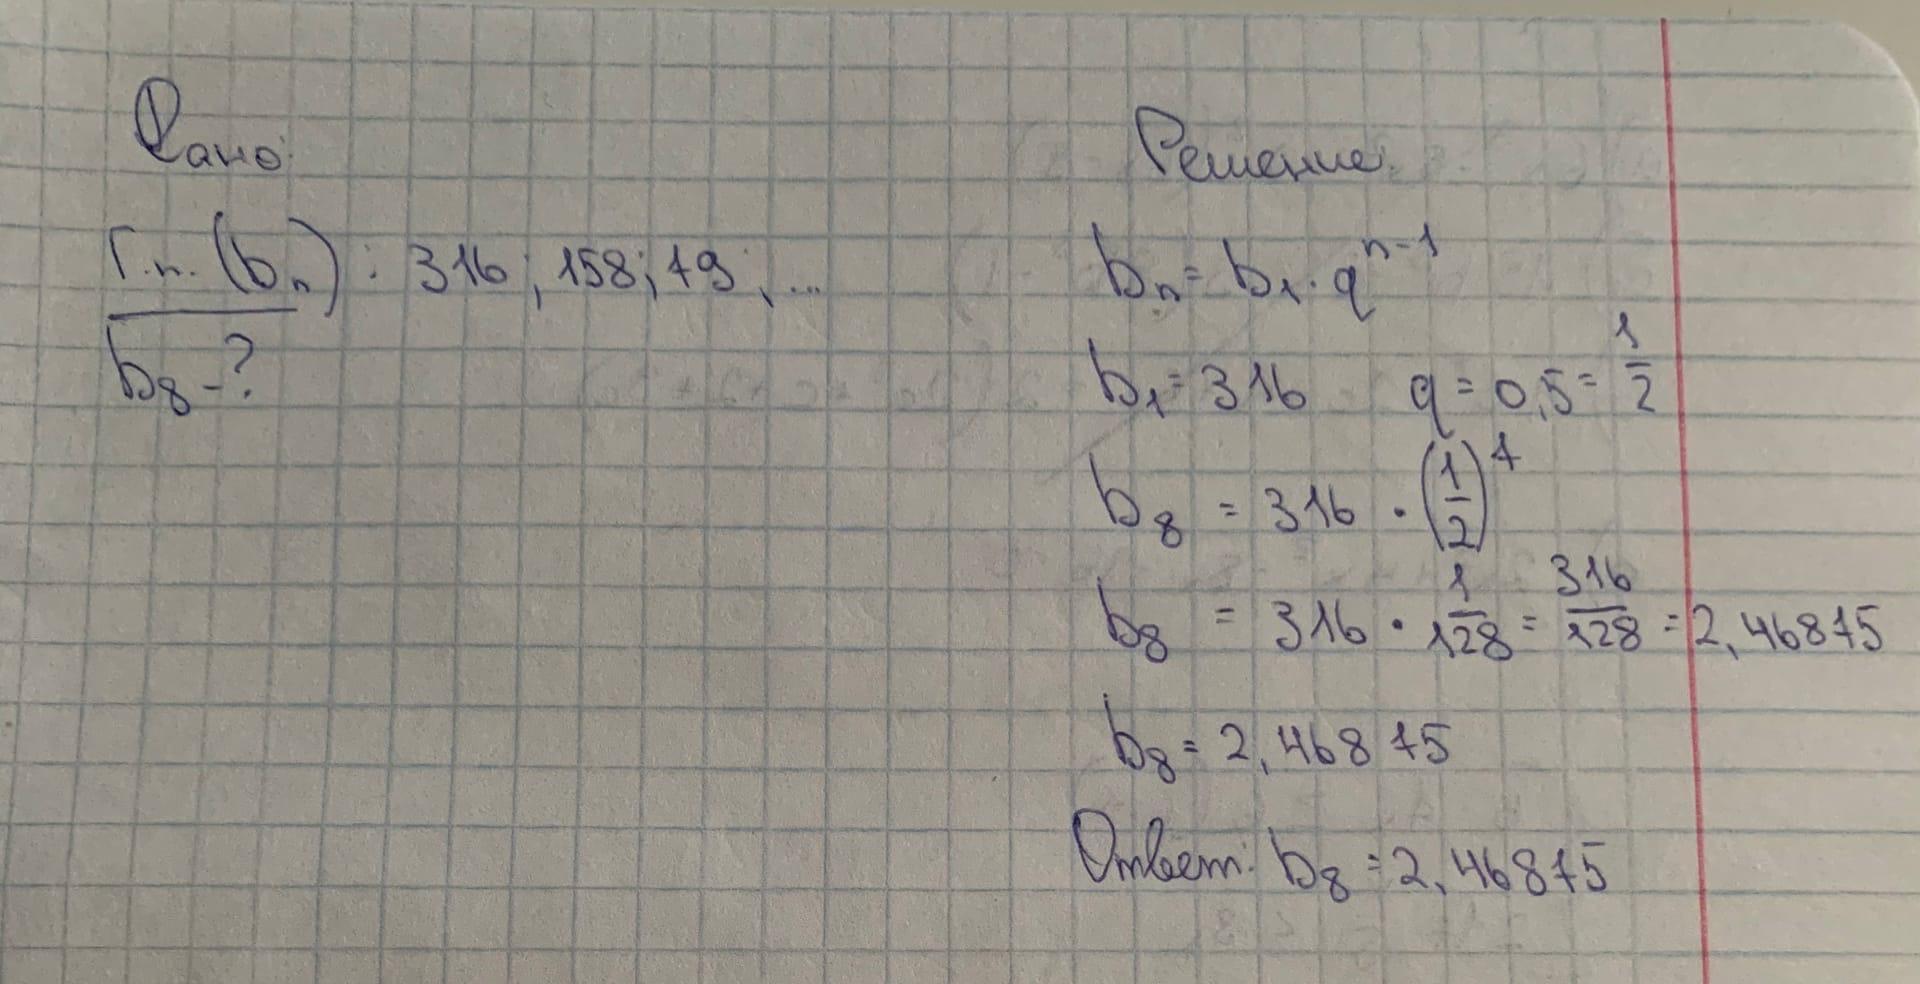 Дано:
Г.п. (bₙ) : 316 ; 158 ; 79 ; ...
b₈ - ?
Решение:
bₙ = b₁ · qⁿ⁻¹
b₁ = 316 q = 0,5 = 1/2
b₈ = 316 · (1/2)⁷
b₈ = 316 · 1/128 = 316/128 = 2,46875
b₈ = 2,46875
Ответ: b₈ = 2,46875